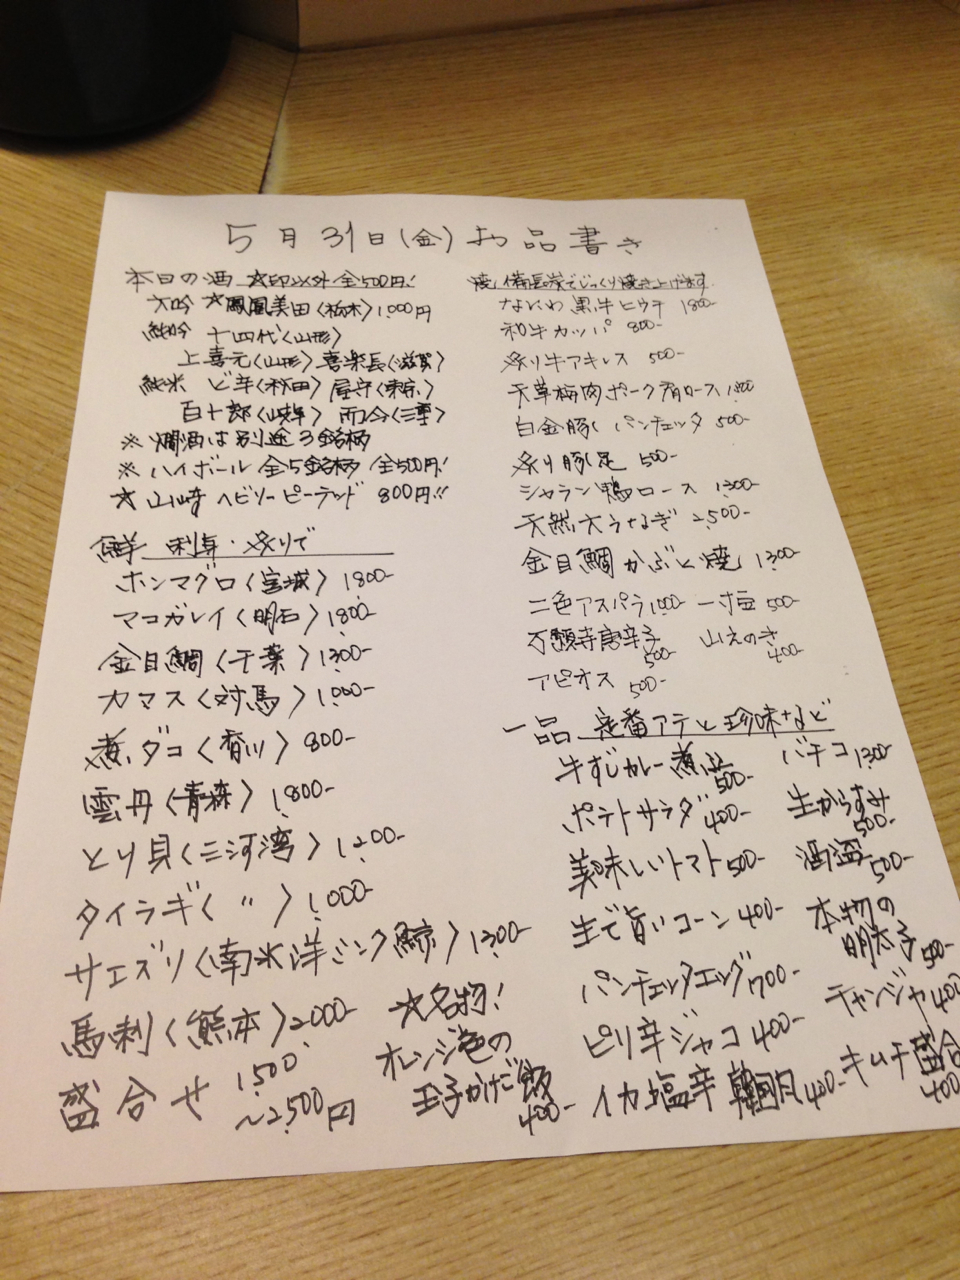 5月31日(金)お品書き
本日の酒 ☆印以外全500円!
大吟 ☆鳳凰美田〈栃木〉1,000円
純吟 十四代〈山形〉
上喜元〈山形〉喜楽長〈滋賀〉
純米 ど辛〈秋田〉屋守〈東京〉
百十郎〈岐阜〉而今〈三重〉
※燗酒は別途3銘柄
※ハイボール 全5銘柄 全500円!
☆山崎 ヘビリーピーテッド 800円!!
鮮 刺身・炙りで
ホンマグロ〈宮城〉1,800-
マコガレイ〈明石〉1,800-
金目鯛〈千葉〉1,300-
カマス〈対馬〉1,000-
煮ダコ〈香川〉800-
雲丹〈青森〉1,800-
とり貝〈三河湾〉1,200-
タイラギ〈 〃 〉1,000-
サエズリ〈南氷洋ミンク鯨〉1,300-
馬刺〈熊本〉2,000-
盛合せ 1,500
〜2,500円
☆名物!
オレンジ色の
玉子かけご飯
400-
焼 備長炭でじっくり焼き上げます
なにわ黒牛ヒウチ 1,800-
和牛カッパ 800-
炙り牛アキレス 500-
天草梅肉ポーク肩ロース
白金豚 パンチェッタ 500-
炙り豚足 500-
シャラン鴨ロース 1,300-
天然大うなぎ 2,500-
金目鯛かぶと焼 1,300-
二色アスパラ 1,000- 一寸豆 500-
万願寺唐辛子 山えのき
500- 400-
アピオス 500-
一品 定番アテと珍味など
牛すじカレー煮込
500-
ポテトサラダ 400-
美味しいトマト 500-
生で旨いコーン 400-
パンチェッタエッグ 700-
ピリ辛ジャコ 400-
イカ塩辛 400-
バチコ 1,300-
生からすみ
500-
酒盗 500-
本物の
明太子 500-
チャンジャ 400-
キムチ盛合
400-